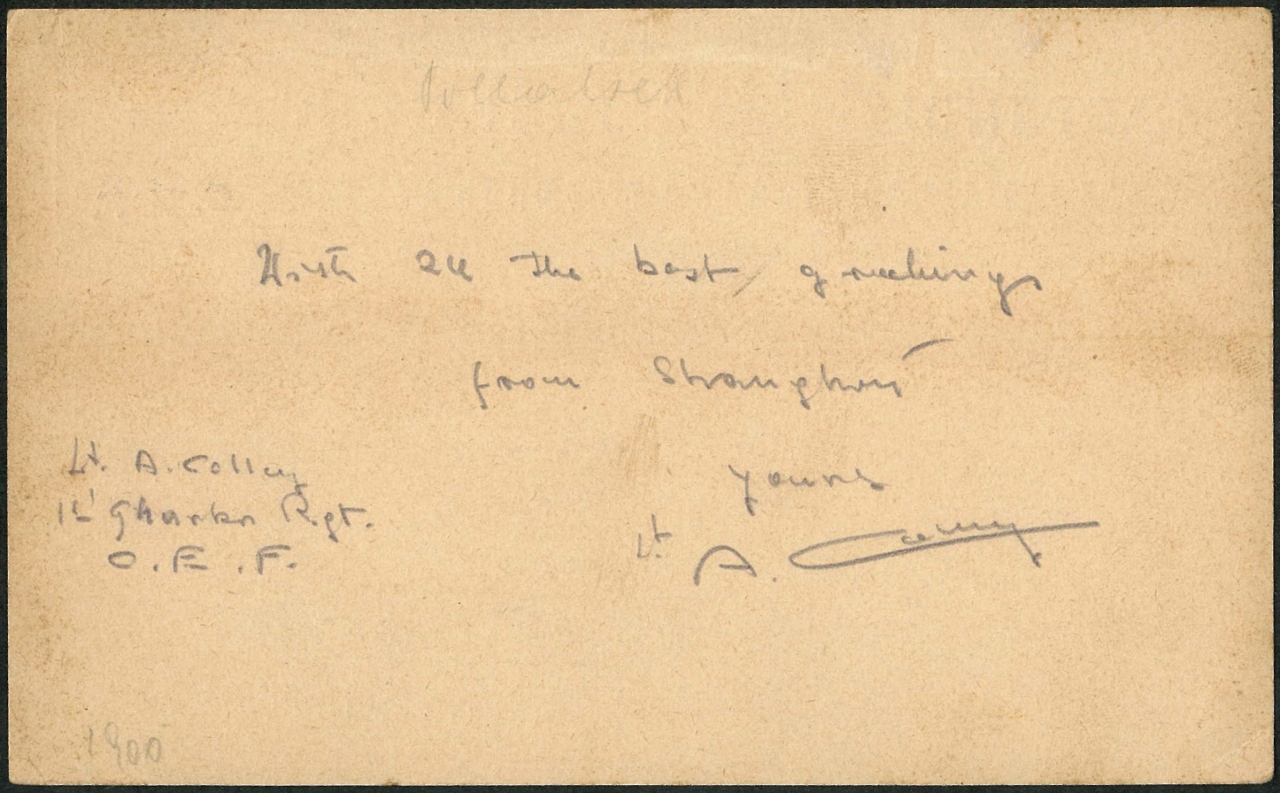 With all the best greetings
from Shanghai
Lt. A. Colley
1st Ghurka Rgt.
C. E. F.
yours
Lt. A. Colley
1900